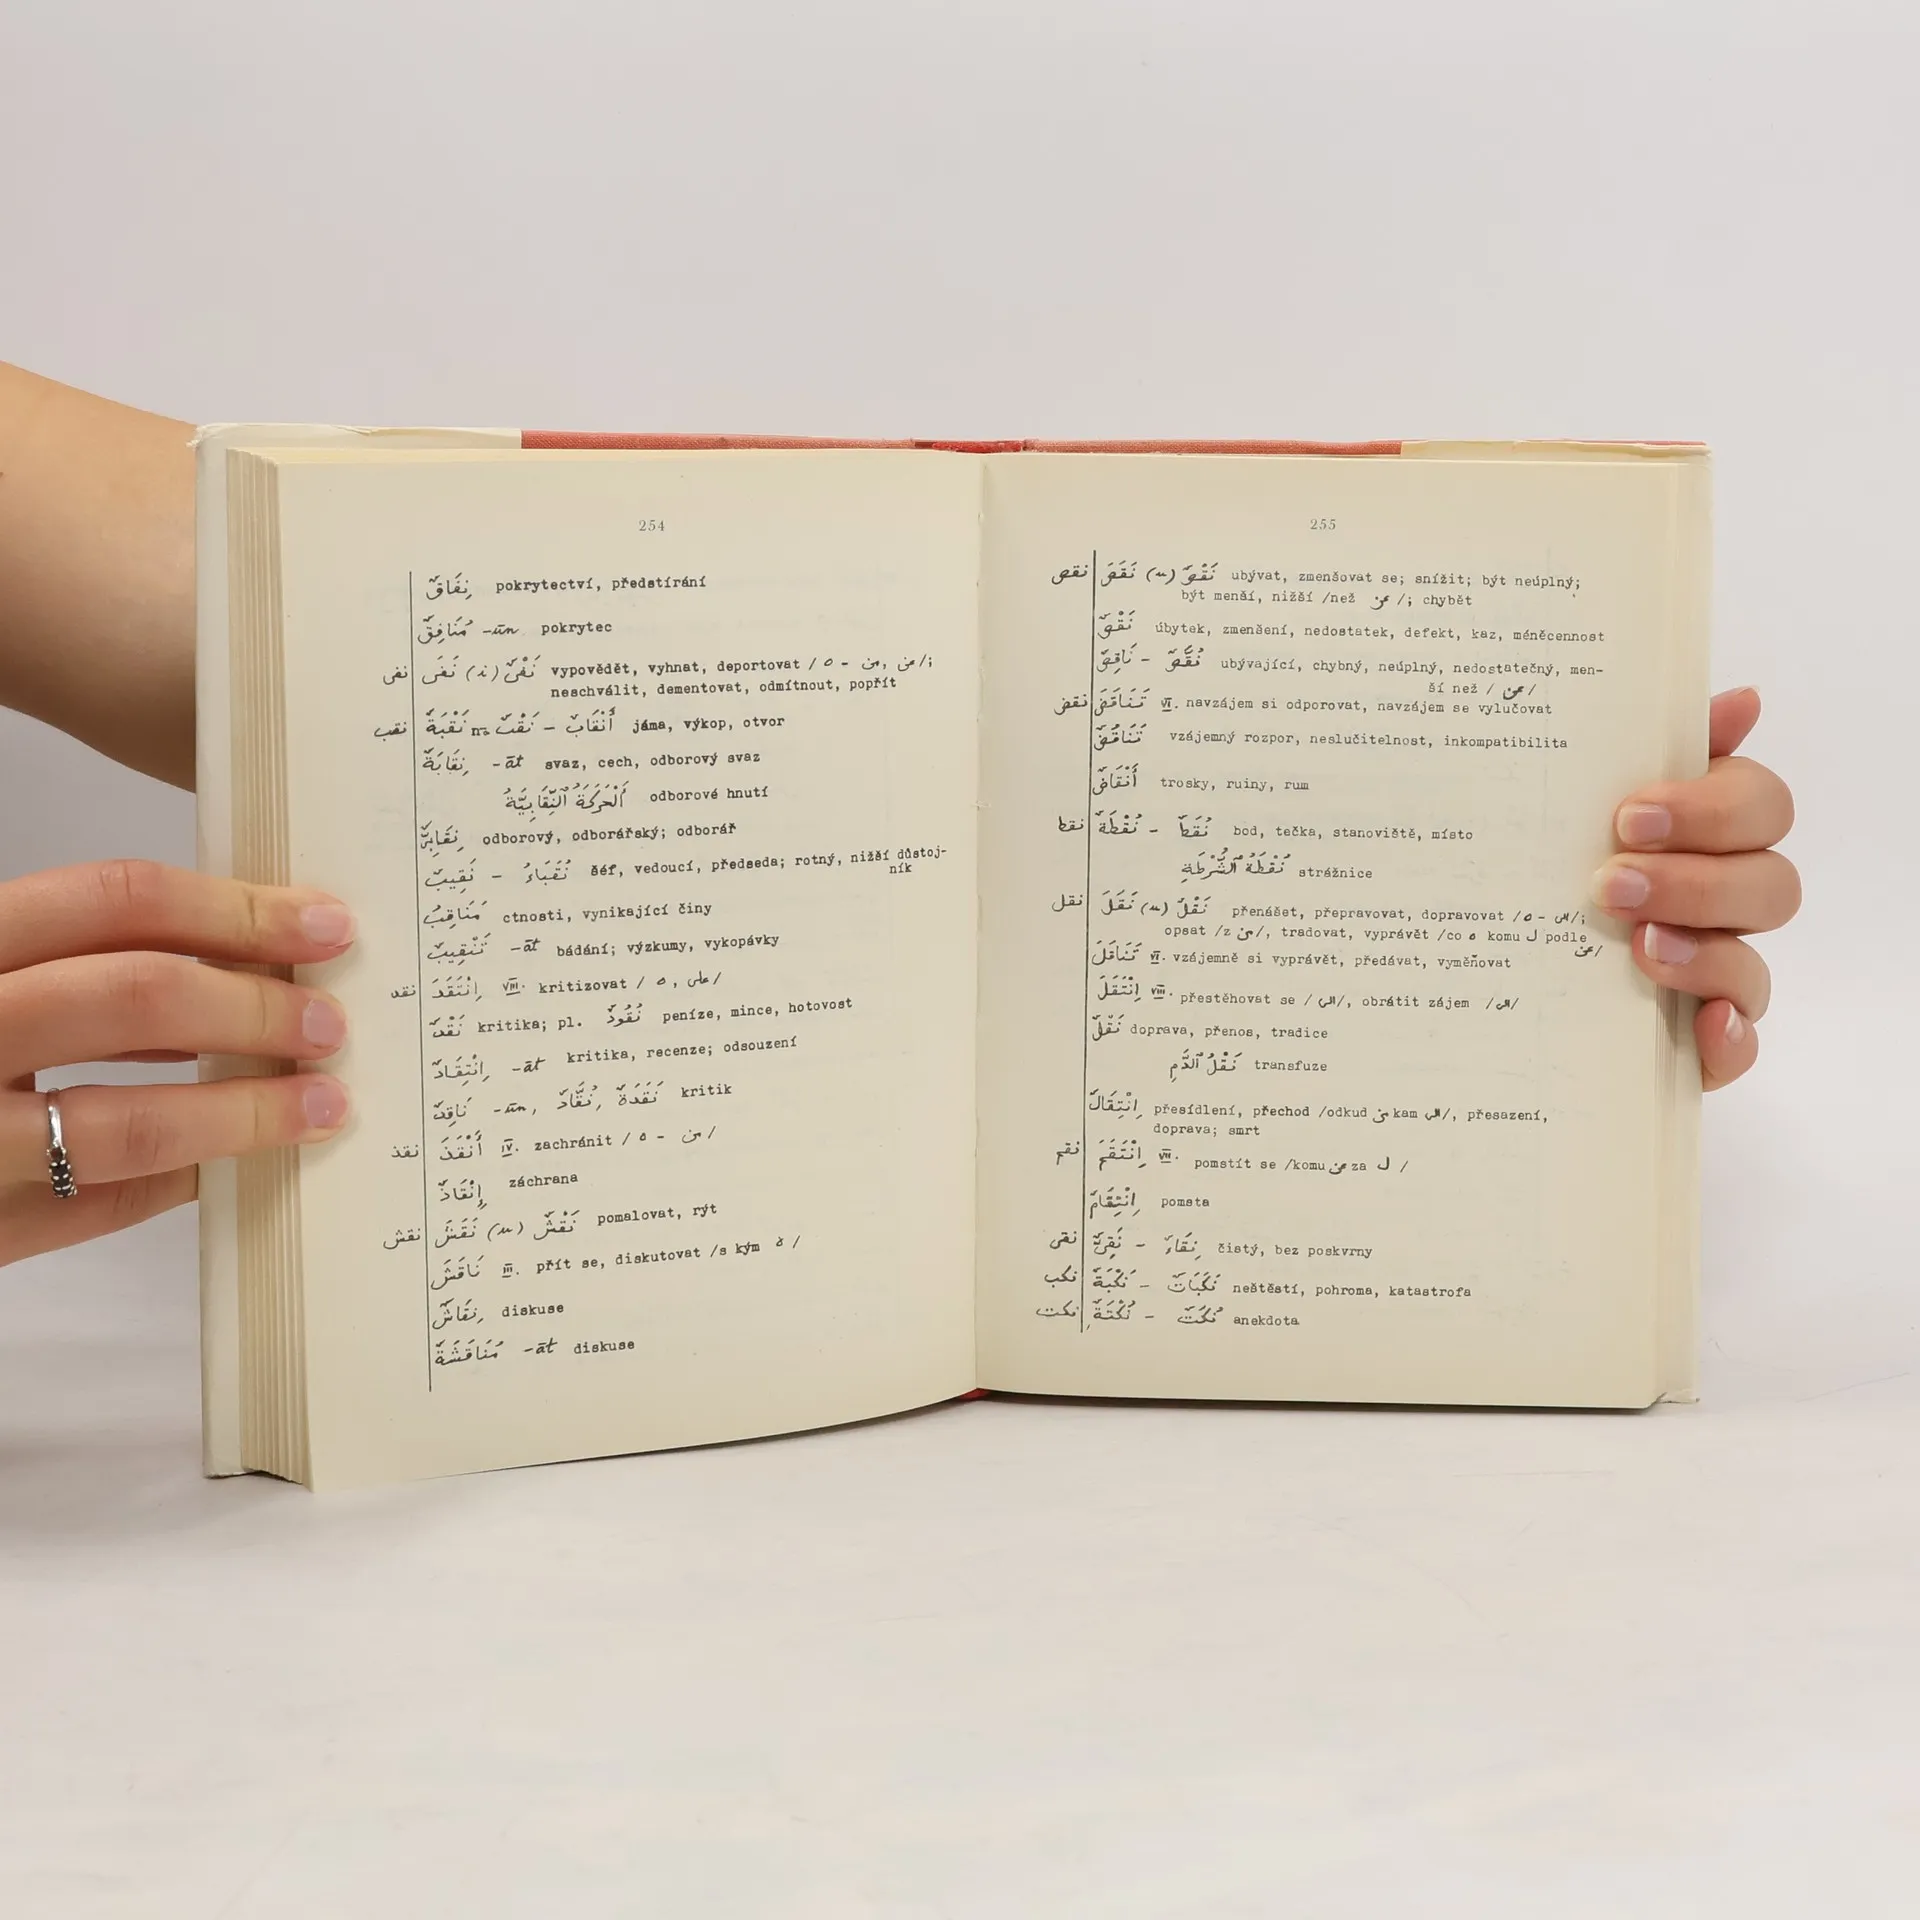 254
نِفَاقٌ pokrytectví, předstírání
مُنَافِقٌ -ūn pokrytec
نفى نَفَى (i) نَفْيٌ vypovědět, vyhnat, deportovat / ه - من, عن /;
neschválit, dementovat, odmítnout, popřít
نقب نَقْبَةٌ n. نَقْبٌ - أَنْقَابٌ jáma, výkop, otvor
نِقَابَةٌ -āt svaz, cech, odborový svaz
اَلْحَرَكَةُ ٱلنِّقَابِيَّةُ odborové hnutí
نِقَابِيٌّ odborový, odborářský; odborář
نَقِيبٌ - نُقَبَاءُ šéf, vedoucí, předseda; rotný, nižší důstoj-
ník
مَنَاقِبُ ctnosti, vynikající činy
تَنْقِيبٌ -āt bádání; výzkumy, vykopávky
نقد اِنْتَقَدَ VIII. kritizovat / ه, على /
نَقْدٌ kritika; pl. نُقُودٌ peníze, mince, hotovost
اِنْتِقَادٌ -āt kritika, recenze; odsouzení
نَاقِدٌ -ūn, نُقَّادٌ, نَقَدَةٌ kritik
نقذ أَنْقَذَ IV. zachránit / ه - من /
إِنْقَاذٌ záchrana
نقش نَقَشَ (u) نَقْشٌ pomalovat, rýt
نَاقَشَ III. přít se, diskutovat /s kým ه /
نِقَاشٌ diskuse
مُنَاقَشَةٌ -āt diskuse
255
نقص نَقَصَ (u) نَقْصٌ ubývat, zmenšovat se; snížit; být neúplný;
být menší, nižší /než عن /; chybět
نَقْصٌ úbytek, zmenšení, nedostatek, defekt, kaz, méněcennost
نَاقِصٌ - نُقَّصٌ ubývající, chybný, neúplný, nedostatečný, men-
ší než / عن /
نقض تَنَاقَضَ VI. navzájem si odporovat, navzájem se vylučovat
تَنَاقُضٌ vzájemný rozpor, neslučitelnost, inkompatibilita
أَنْقَاضٌ trosky, ruiny, rum
نقط نُقْطَةٌ - نُقَطٌ bod, tečka, stanoviště, místo
نُقْطَةُ ٱلشُّرْطَةِ strážnice
نقل نَقَلَ (u) نَقْلٌ přenášet, přepravovat, dopravovat / ه - الى /;
opsat /z من /, tradovat, vyprávět /co ه komu ل podle
عن /
تَنَاقَلَ VI. vzájemně si vyprávět, předávat, vyměňovat
اِنْتَقَلَ VIII. přestěhovat se / الى /, obrátit zájem / الى /
نَقْلٌ doprava, přenos, tradice
نَقْلُ ٱلدَّمِ transfuze
اِنْتِقَالٌ přesídlení, přechod /odkud من kam الى /, přesazení,
doprava; smrt
نقم اِنْتَقَمَ VIII. pomstít se /komu من za ل /
اِنْتِقَامٌ pomsta
نقى نَقِيٌّ - نِقَاءٌ čistý, bez poskvrny
نكب نَكْبَةٌ - نَكَبَاتٌ neštěstí, pohroma, katastrofa
نكت نُكْتَةٌ - نُكَتٌ anekdota